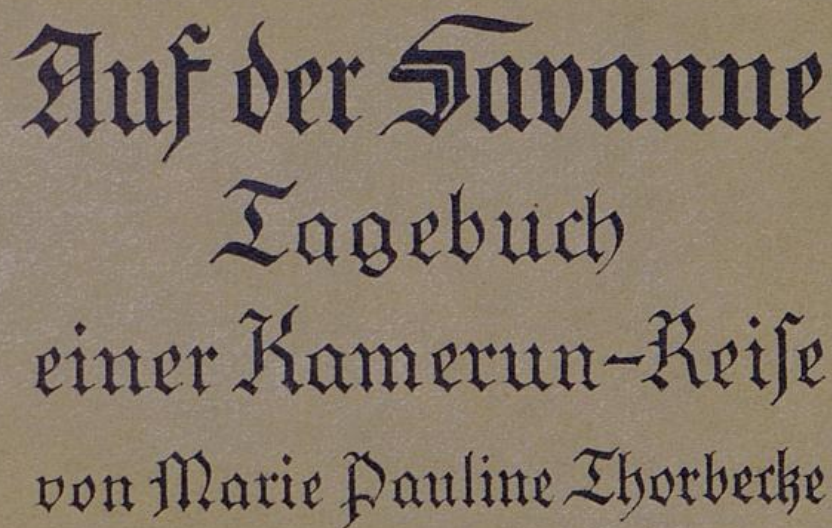 Auf der Savanne
Tagebuch
einer Kamerun-Reiſe
von Marie Pauline Thorbecke